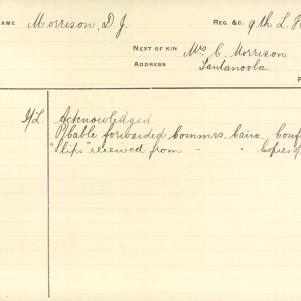 NAME Morrison, D. J. REG. &C. 9th L. H
NEXT OF KIN Mrs C. Morrison
ADDRESS Tantanoola
I/L. Acknowledged
Cable forwarded Commrs. Cairo. Conf
"Slips" received from - " Copies of